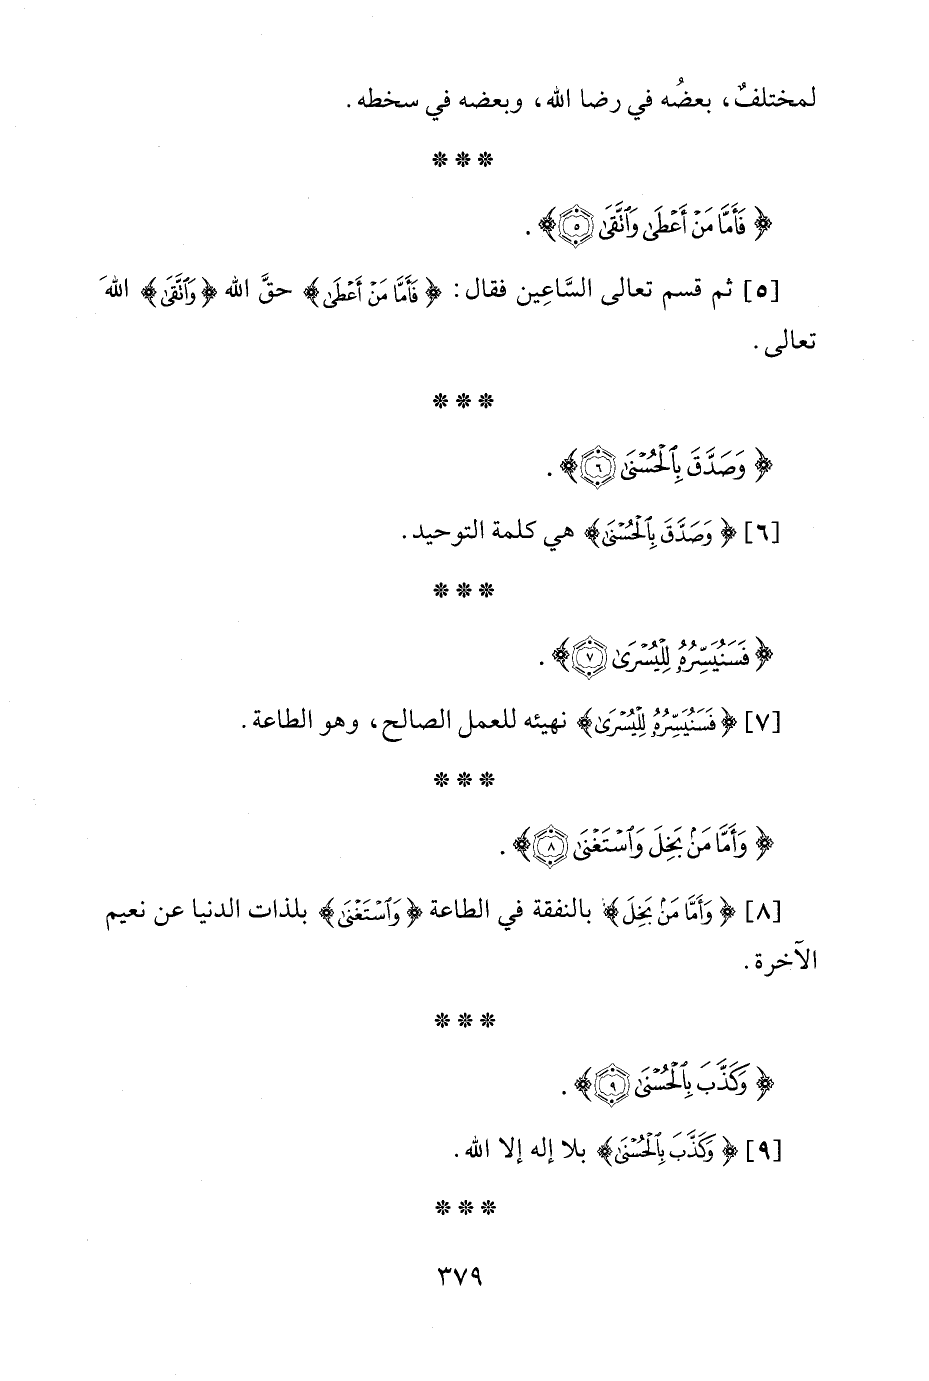 لمختلفٌ، بعضُه في رضا الله، وبعضه في سخطه.
* * *
﴿فَأَمَّا مَنْ أَعْطَى وَٱتَّقَى ۝٥﴾.
[٥] ثم قسم تعالى السَّاعِين فقال: ﴿فَأَمَّا مَنْ أَعْطَى﴾ حقَّ الله ﴿وَٱتَّقَى﴾ اللهَ
تعالى.
* * *
﴿وَصَدَّقَ بِٱلْحُسْنَى ۝٦﴾.
[٦] ﴿وَصَدَّقَ بِٱلْحُسْنَى﴾ هي كلمة التوحيد.
* * *
﴿فَسَنُيَسِّرُهُۥ لِلْيُسْرَى ۝٧﴾.
[٧] ﴿فَسَنُيَسِّرُهُۥ لِلْيُسْرَى﴾ نهيئه للعمل الصالح، وهو الطاعة.
* * *
﴿وَأَمَّا مَنۢ بَخِلَ وَٱسْتَغْنَى ۝٨﴾.
[٨] ﴿وَأَمَّا مَنۢ بَخِلَ﴾ بالنفقة في الطاعة ﴿وَٱسْتَغْنَى﴾ بلذات الدنيا عن نعيم
الآخرة.
* * *
﴿وَكَذَّبَ بِٱلْحُسْنَى ۝٩﴾.
[٩] ﴿وَكَذَّبَ بِٱلْحُسْنَى﴾ بلا إله إلا الله.
* * *
٣٧٩